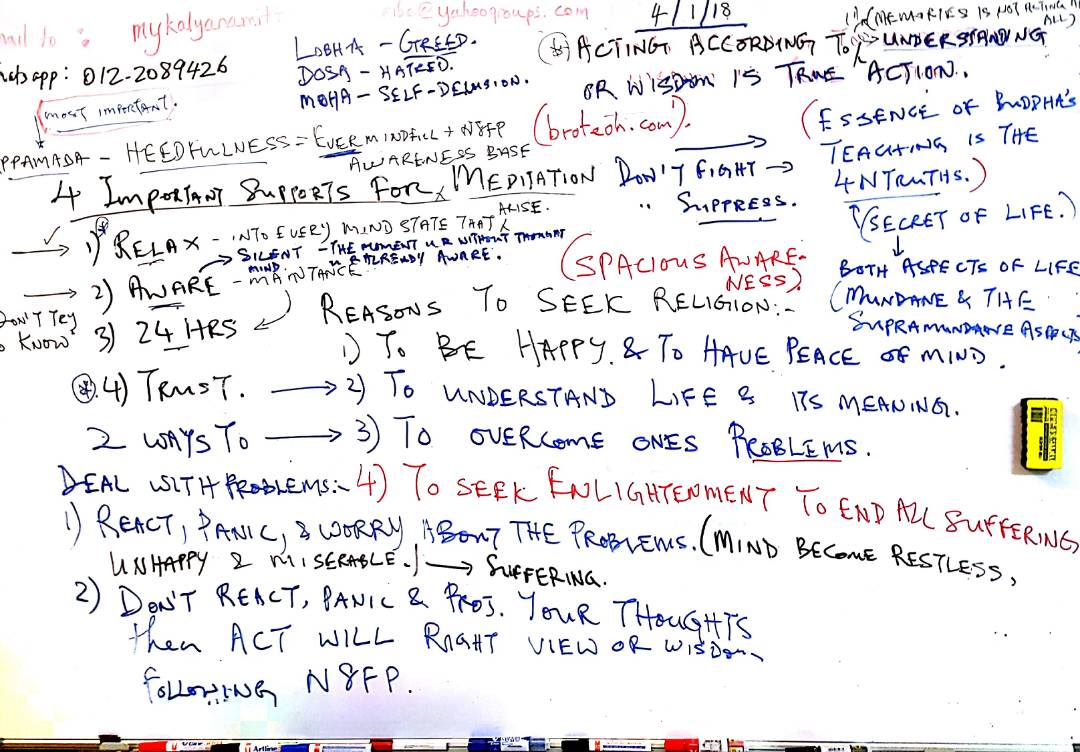 mail to : mykalyanamit ribc@yahoogroups.com
hatsapp: 012-2089426
4/1/18
(MEMORIES IS NOT ACTING AT ALL)
LOBHA – GREED.
DOSA – HATRED.
MOHA – SELF-DELUSION.
(*) ACTING ACCORDING TO UNDERSTANDING
OR WISDOM IS TRUE ACTION.
most IMPORTANT.
PPAMADA – HEEDFULNESS = EVER MINDFULL + N8FP
AWARENESS BASE
(broteoh.com).
(ESSENCE OF BUDDHA'S
TEACHING IS THE
4NTRUTHS.)
(SECRET OF LIFE.)
BOTH ASPECTS OF LIFE
(MUNDANE & THE
SUPRAMUNDANE ASPECTS
4 IMPORTANT SUPPORTS FOR MEDITATION
DON'T FIGHT →
" SUPPRESS.
→ 1) RELAX – INTO EVERY MIND STATE THAT ARISE.
SILENT MIND. – THE MOMENT U R WITHOUT THOUGHT
U R ALREADY AWARE.
→ 2) AWARE – MAINTANCE
(SPACIOUS AWARE-
NESS).
DON'T TRY
O KNOW
3) 24 HRS
(*) 4) TRUST.
REASONS TO SEEK RELIGION:-
1) TO BE HAPPY. & TO HAVE PEACE OF MIND.
→ 2) TO UNDERSTAND LIFE & ITS MEANING.
2 WAYS TO → 3) TO OVERCOME ONES PROBLEMS.
DEAL WITH PROBLEMS:- 4) TO SEEK ENLIGHTENMENT TO END ALL SUFFERING
1) REACT, PANIC, & WORRY ABOUT THE PROBLEMS. (MIND BECOME RESTLESS,
UNHAPPY & MISERABLE.) → SUFFERING.
2) DON'T REACT, PANIC & PROJ. YOUR THOUGHTS
then ACT WILL RIGHT VIEW OR WISDOM
FOLLOWING N8FP.
Artline